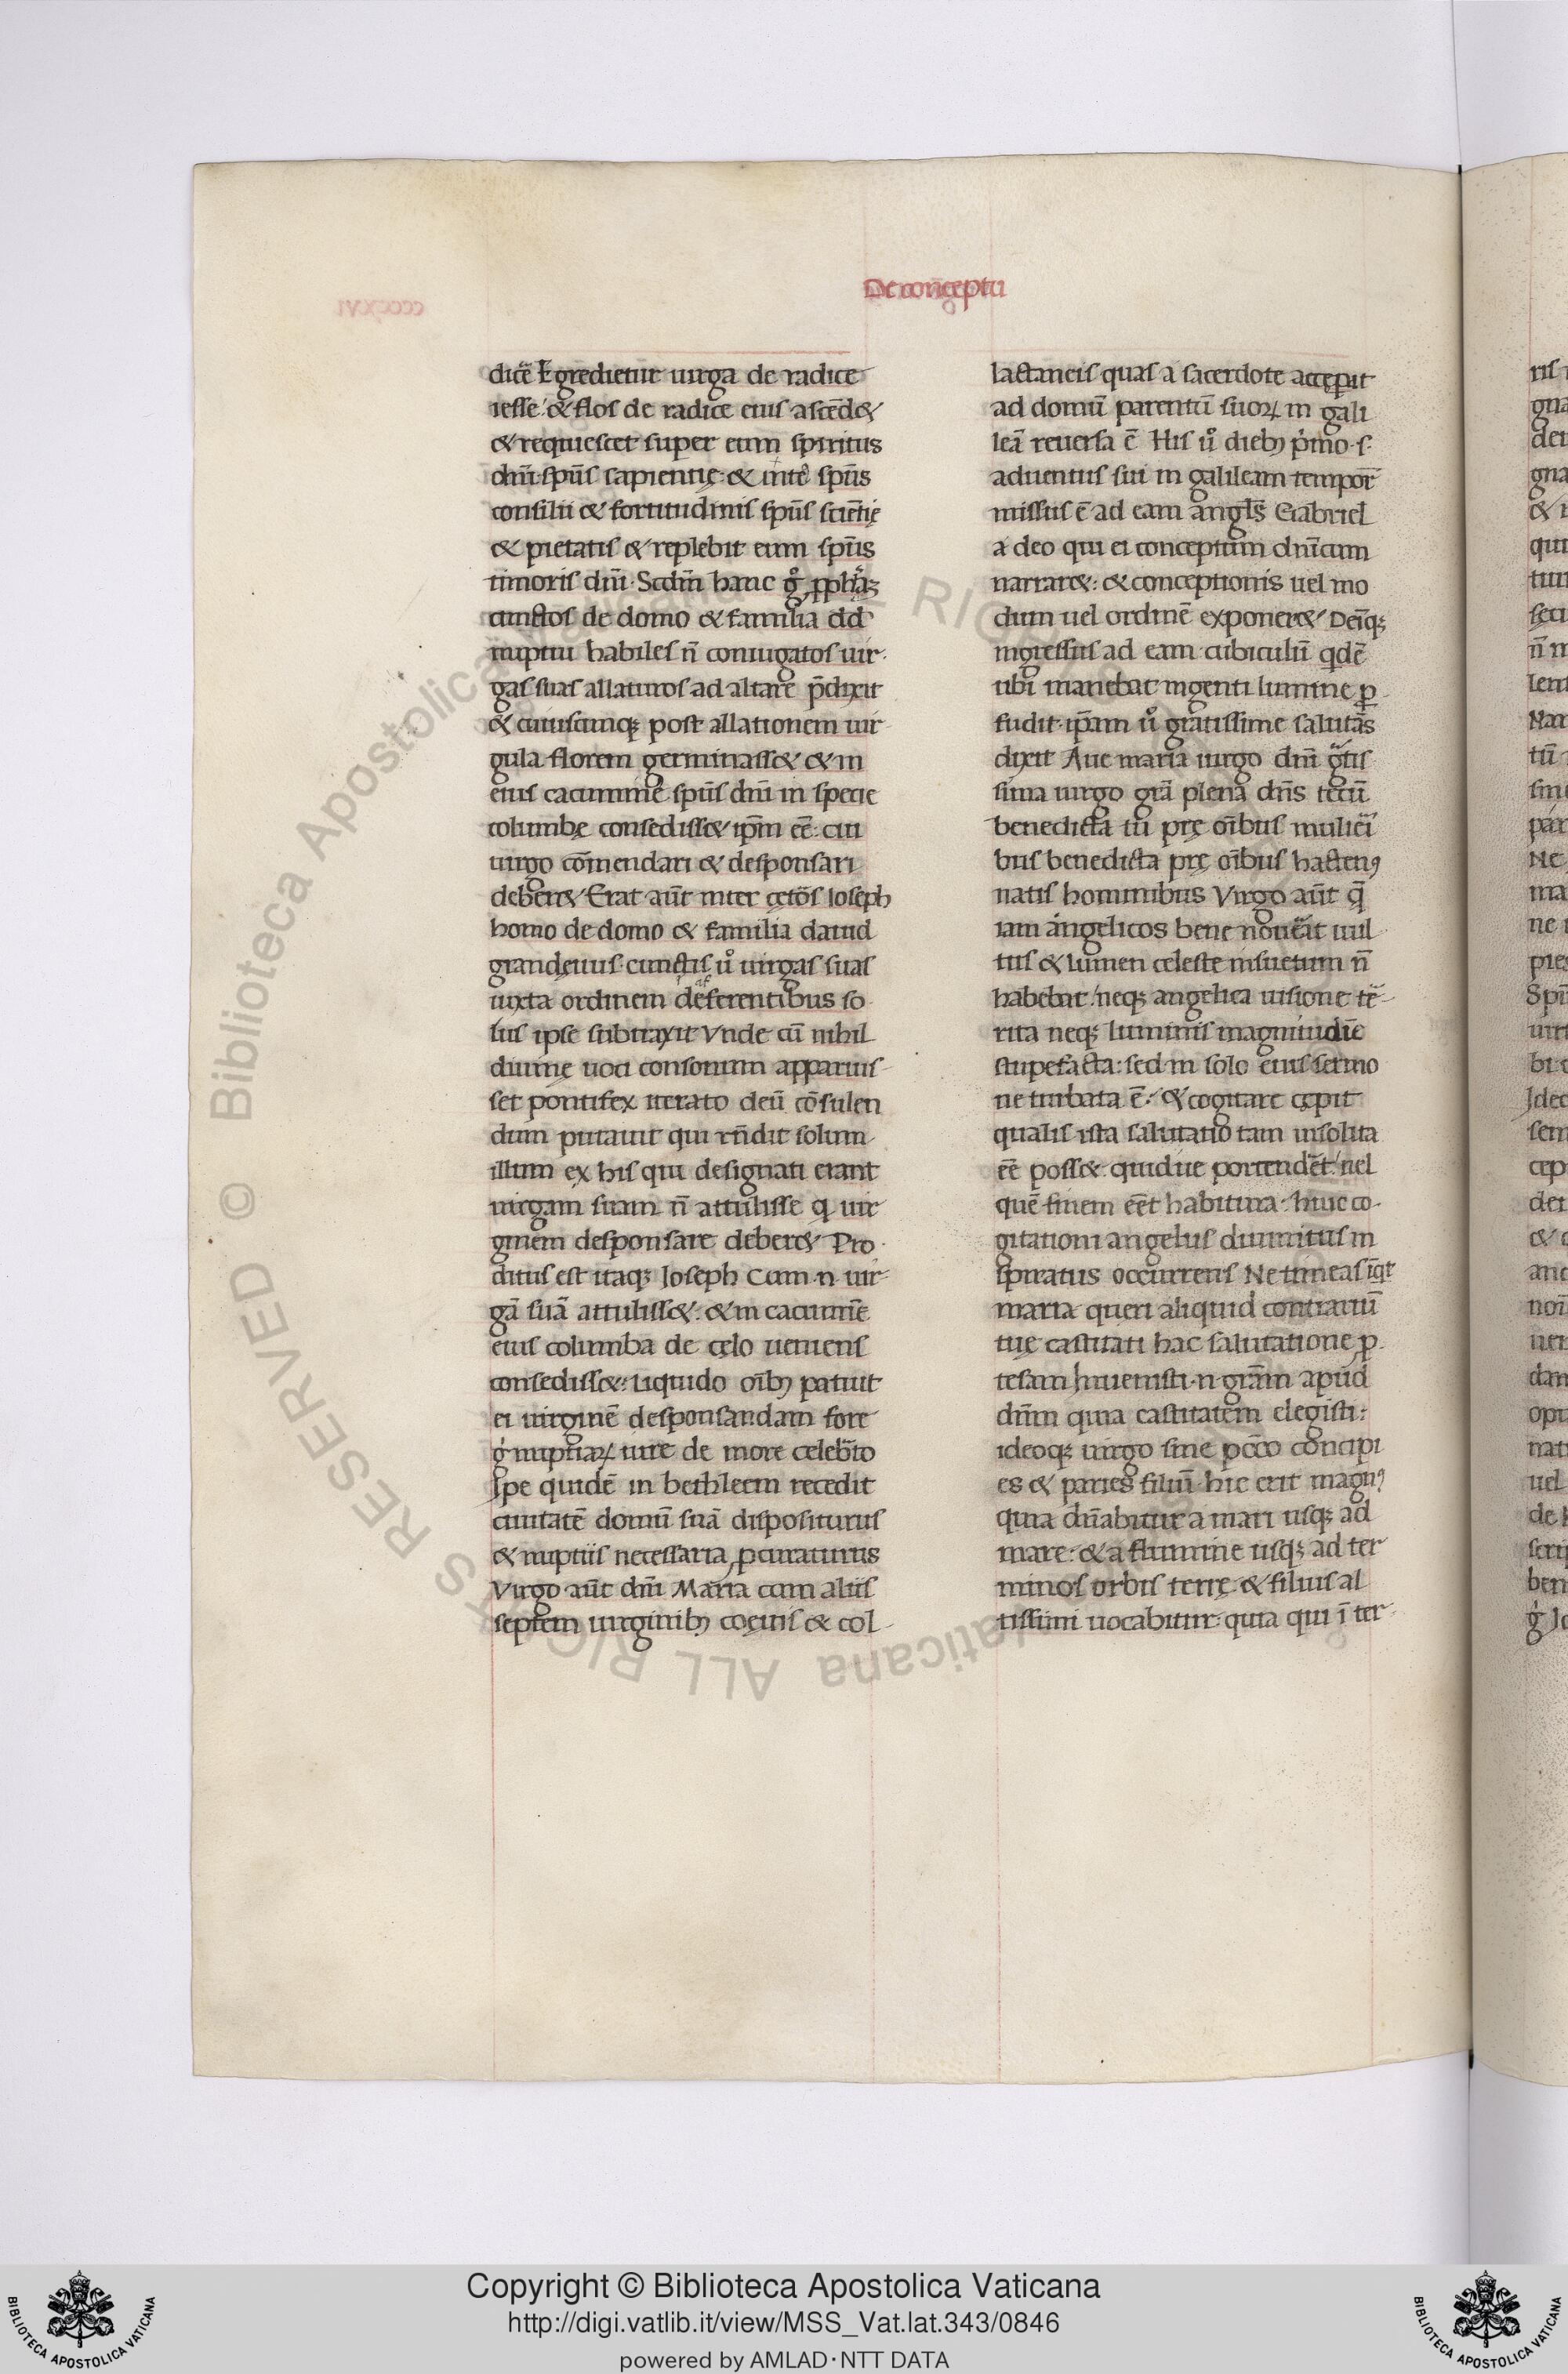 De conceptu
dicẽ Egredietur uirga de radice
iesse: & flos de radice eius ascẽd&
& requiescet super eum spiritus
dñi. spũs sapientię. & inteł spũs
consilii & fortitudinis spũs sciẽtię
& pietatis & replebit eum spũs
timoris dñi. Scdm̃ hanc gͦ
cunctos de domo & familia dd̃
nuptui habiles ñ coniugatos uir-
gas suas allaturos ad altare p̃dixit
& cuiuscunqꝫ post allationem uir-
gula florem germinass& & in
eius cacumine spũs dñi in specie
columbę consediss& ip̃m eẽ: cui
uirgo cõmendari & desponsari
deber& Erat aũt inter cętõs Ioseph
homo de domo & familia dauid
grandęuus. cunctis uͦ uirgas suas
iuxta ordinem deferentibus so
lus ipse subtraxit Vnde cũ nihil
diuinę uoci consonum apparuis-
set pontifex iterato deũ cõsulen
dum putauit qui rñdit solum
illum ex his qui designati erant
uirgam suam ñ attulisse q uir
ginem desponsare deber& Pro
ditus est itaqꝫ Ioseph Cum .n. uir-
gã suã attuliss&: & in cacumĩe
eius columba de cęlo ueniens
consediss&: liquido oĩbꝫ patuit
ei uirginẽ desponsandam fore
g̍ nuptiaꝝ iure de more celeb̃to
Ipe quidẽ in bethleem recedit
ciuitatẽ domũ suã dispositurus
& nuptiis necessaria ꝓcuraturus
Virgo aũt dñi Maria cum aliis
septem uirginibꝫ coęuis & col-
lactaneis quas a sacerdote acceperat
ad domũ parentũ suoꝝ in gali
leã reuersa ẽ His uͦ diebꝫ p̍mo .s.
aduentus sui in galileam tempor̃
missus ẽ ad eam angłs Gabriel
a deo qui ei conceptum dñicum
narrar&: & conceptionis uel mo
dum uel ordinẽ exponer& Deĩqꝫ
ingressus ad eam cubiculũ qdẽ
ubi manebat ingenti lumine ꝑ
fudit. ip̃am uͦ gratissime salutãs
dixit Aue maria uirgo dñi g̃tis
sima uirgo grã plena dñs tecũ
benedicta tu prę oĩbus mulieri
bus benedicta prę oĩbus hactenꝰ
natis hominibus Virgo aũt q̃
iam angelicos bene nouerat uul
tus & lumen celeste insuetum ñ
habebat: neqꝫ angelica uisione te-
rita neqꝫ luminis magnitudĩe
stupefacta: sed in solo eius sermo
ne turbata ẽ: & cogitare cępit
qualis ista salutatio tam insolita
eẽ poss& quidue portendẽt: uel
quẽ finem eẽt habitura. huic co-
gitationi angelus diuinitus in
spiratus occurrens Ne timeas iq̃t
maria queri aliquid contrariũ
tuę castitati hac salutatione p
tesam Inuenisti .n. grãm apud
dñm quia castitatem elegisti:
ideoqꝫ uirgo sine pcc̃o concipi
es & paries filiũ. hic erit magnꝰ
quia dñabitur a mari usqꝫ ad
mare: & a flumine usqꝫ ad ter
minos orbis terrę & filius al
tissimi uocabitur. quia qui ĩ ter-
Copyright © Biblioteca Apostolica Vaticana
http://digi.vatlib.it/view/MSS_Vat.lat.343/0846
powered by AMLAD·NTT DATA
BIBLIOTECA APOSTOLICA VATICANA
BIBLIOTECA APOSTOLICA VATICANA